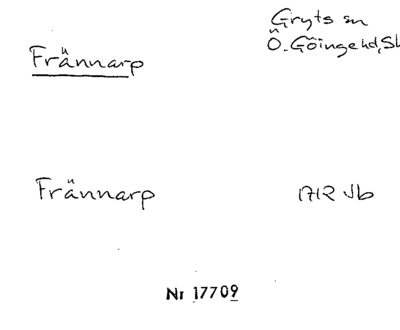 Gryts sn
Frännarp Ö. Göinge hd, Sk
Frännarp 1712 Jb
Nr 17709